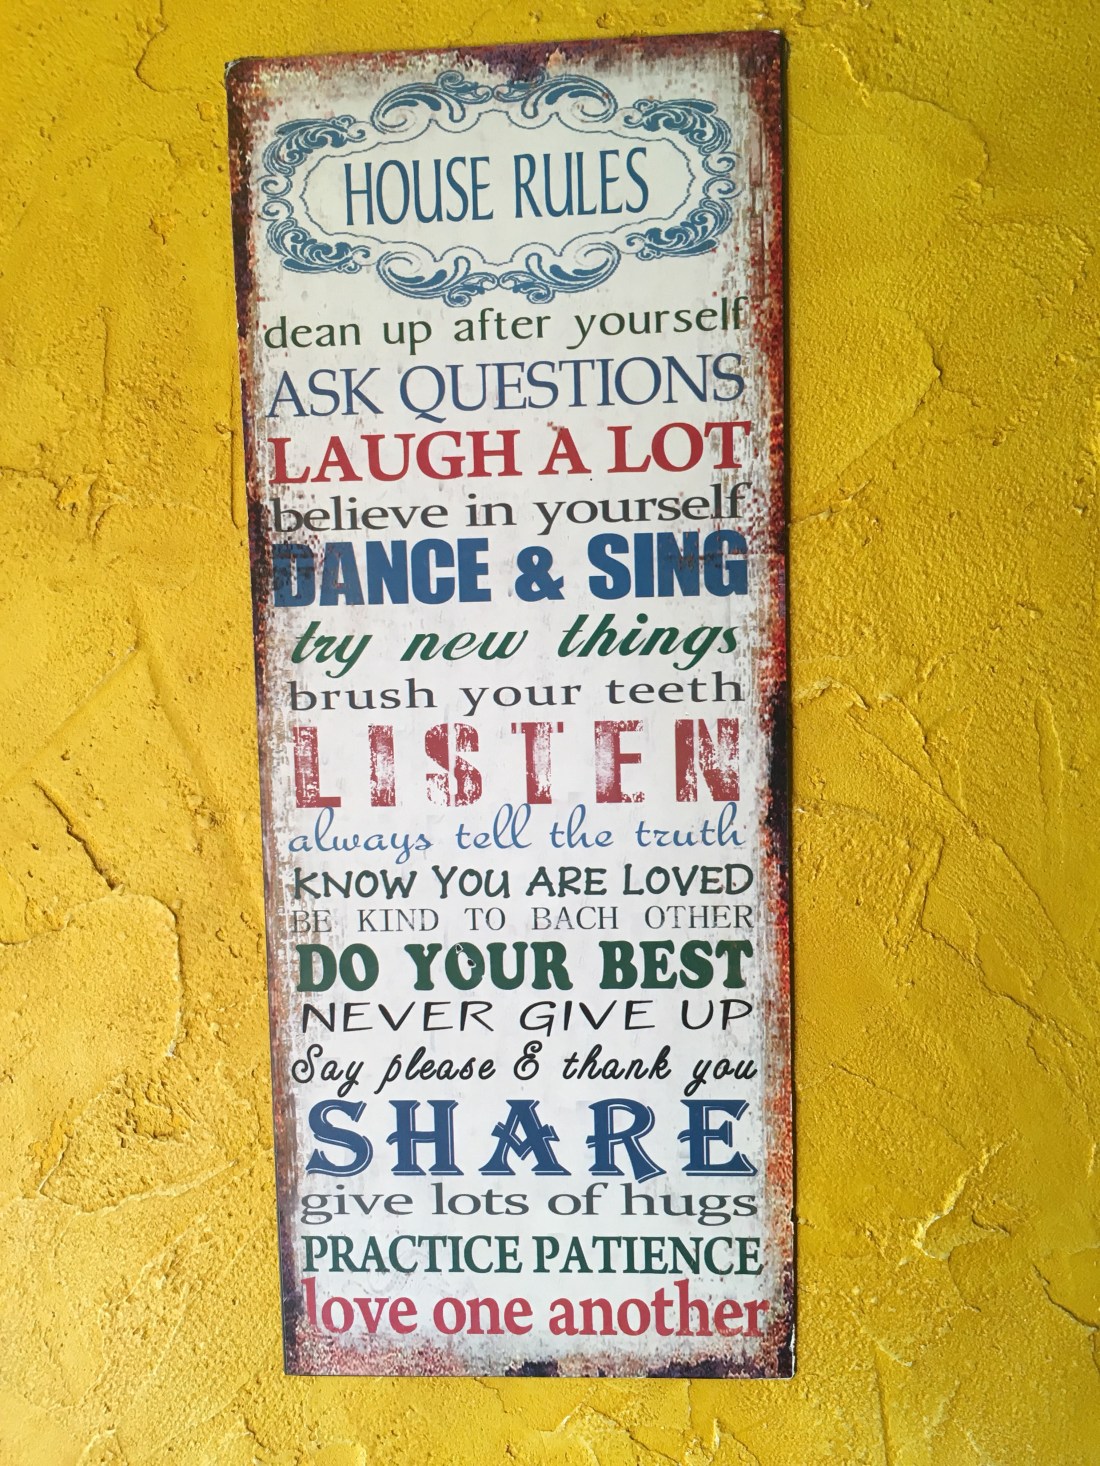 HOUSE RULES
dean up after yourself
ASK QUESTIONS
LAUGH A LOT
believe in yourself
DANCE & SING
try new things
brush your teeth
LISTEN
always tell the truth
KNOW YOU ARE LOVED
BE KIND TO BACH OTHER
DO YOUR BEST
NEVER GIVE UP
Say please & thank you
SHARE
give lots of hugs
PRACTICE PATIENCE
love one another